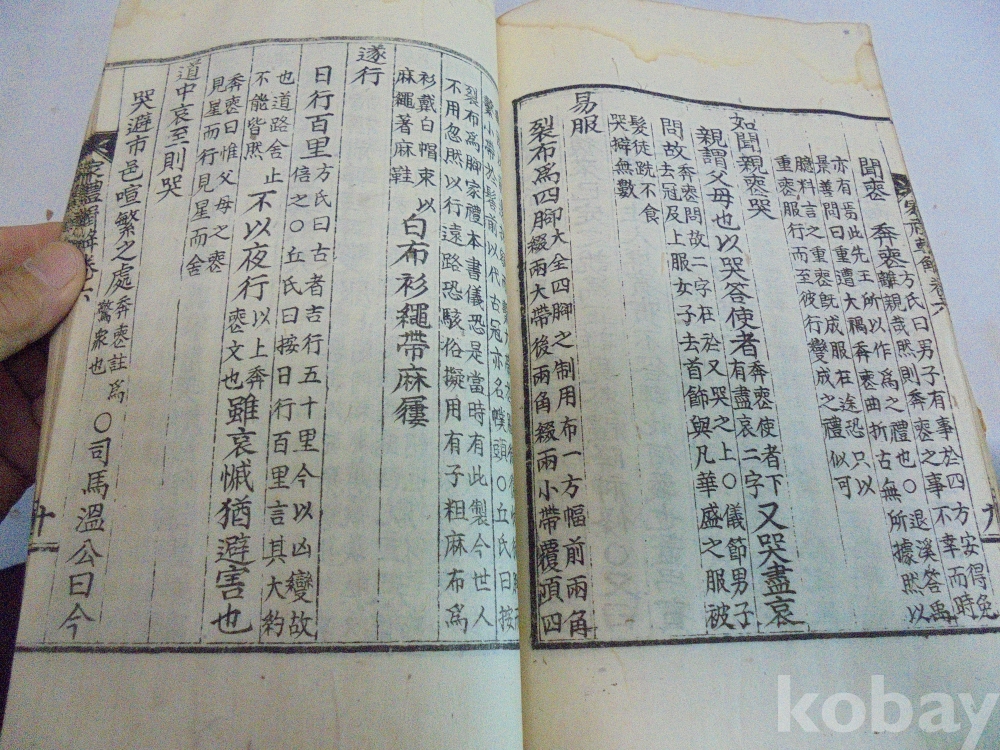 聞喪
奔喪 方氏曰男子有事於四方安得免
離親哉然則奔喪之事不幸而時
亦有焉此先王所以作爲之禮也○退溪答禹
景善問曰重遭大禍奔喪曲折古無所據然以
臆料言之重喪旣成服在途恐只以
重喪服行而至彼行變成之禮似可
如聞親喪哭
親謂父母也以哭答使者 奔喪使者下有盡哀二字 又哭盡哀
問故 奔喪問故二字在於又哭之上○儀節男子
去冠及上服女子去首飾與凡華盛之服被
髮徒跣不食
哭擗無數
易服
裂布爲四脚 大全四脚之制用布一方幅前兩角
綴兩大帶後兩角綴兩小帶覆頂四
○丘氏曰按
裂布爲脚家禮本書儀恐是當時有此製今世人
不用忽然以行遠路恐駭俗擬用有子粗麻布爲
衫戴白帽束以
麻繩著麻鞋 白布衫繩帶麻屨
遂行
日行百里 方氏曰古者吉行五十里今以凶變故
倍之○丘氏曰按日行百里言其大約
也道路舍止
不能皆然 不以夜行 以上奔喪文也 雖哀慽猶避害也
奔喪曰惟父母之喪
見星而行見星而舍
道中哀至則哭
哭避市邑喧繁之處 奔喪註爲驚衆也 ○司馬溫公曰今
十
kobay